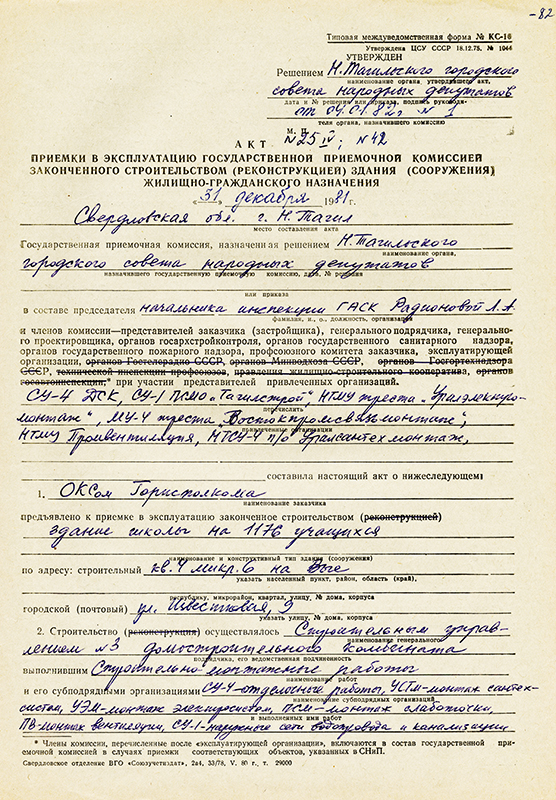 -82
Типовая междуведомственная форма № КС-16
Утверждена ЦСУ СССР 18.12.78. № 1044
УТВЕРЖДЕН
Решением Н.Тагильского городского
наименование органа, утвердившего акт,
совета народных депутатов
дата и № решения или приказа, подпись руководи-
от 04.01.82г. № 1
теля органа, назначившего комиссию
М. П.
№ 25 IV; № 42
АКТ
ПРИЕМКИ В ЭКСПЛУАТАЦИЮ ГОСУДАРСТВЕННОЙ ПРИЕМОЧНОЙ КОМИССИЕЙ
ЗАКОНЧЕННОГО СТРОИТЕЛЬСТВОМ (РЕКОНСТРУКЦИЕЙ) ЗДАНИЯ (СООРУЖЕНИЯ)
ЖИЛИЩНО-ГРАЖДАНСКОГО НАЗНАЧЕНИЯ
«31» декабря 1981г.
Свердловская обл. г. Н.Тагил
место составления акта
Государственная приемочная комиссия, назначенная решением Н.Тагильского
наименование органа,
городского совета народных депутатов
назначившего государственную приемочную комиссию, дата, № решения
или приказа
в составе председателя начальника инспекции ГАСК Радионовой Л.А.
фамилия, и., о., должность, организация
и членов комиссии—представителей заказчика (застройщика), генерального подрядчика, генерально-
го проектировщика, органов госархстройконтроля, органов государственного санитарного надзора,
органов государственного пожарного надзора, профсоюзного комитета заказчика, эксплуатирующей
организации, органов Госгелорадио СССР, органов Минводхоза СССР, органов Госгортехнадзора
СССР, технической инспекции профсоюзов, правления жилищно-строительного кооператива, органов
госавтоинспекции,* при участии представителей привлеченных организаций.
СУ-4 ДСК, СУ-1 ПСМО "Тагилстрой" НТМУ треста "Уралэлектро-
перечислить
монтаж", МУ-4 треста "Востокпромсвязьмонтаж",
привлеченные организации
НТМУ Промвентиляция, НТСУ-4 п/о Уралсантехмонтаж,
составила настоящий акт о нижеследующем:
1. ОКСом Горисполкома
наименование заказчика
предъявлено к приемке в эксплуатацию законченное строительством (реконструкцией)
здание школы на 1176 учащихся
наименование и конструктивный тип здания (сооружения)
по адресу: строительный кв. 4 микр. 6 на Вые
указать населенный пункт, район, область (край),
республику, микрорайон, квартал, улицу, № дома, корпуса
городской (почтовый) ул. Известковая, 9
указать улицу, № дома, корпуса
2. Строительство (реконструкция) осуществлялось Строительным управ-
наименование генерального
лением №3 домостроительного комбината
подрядчика, его ведомственная подчиненность
выполнившим Строительно-монтажные работы
наименование работ
и его субподрядными организациями СУ-4-отделочные работы, УСТМ-монтаж сантех-
наименование субподрядных организаций
систем, УЭМ-монтаж электросистем, ПСМ-монтаж слаботочки,
и выполненных ими работ
ПВ-монтаж вентиляции, СУ-1-наружные сети водопровода и канализации
* Члены комиссии, перечисленные после «эксплуатирующей организации», включаются в состав государственной при-
емочной комиссии в случаях приемки соответствующих объектов, указанных в СНиП.
Свердловское отделение ВГО «Союзучетиздат», 2а4, 33/78, V. 80 г., т. 29000